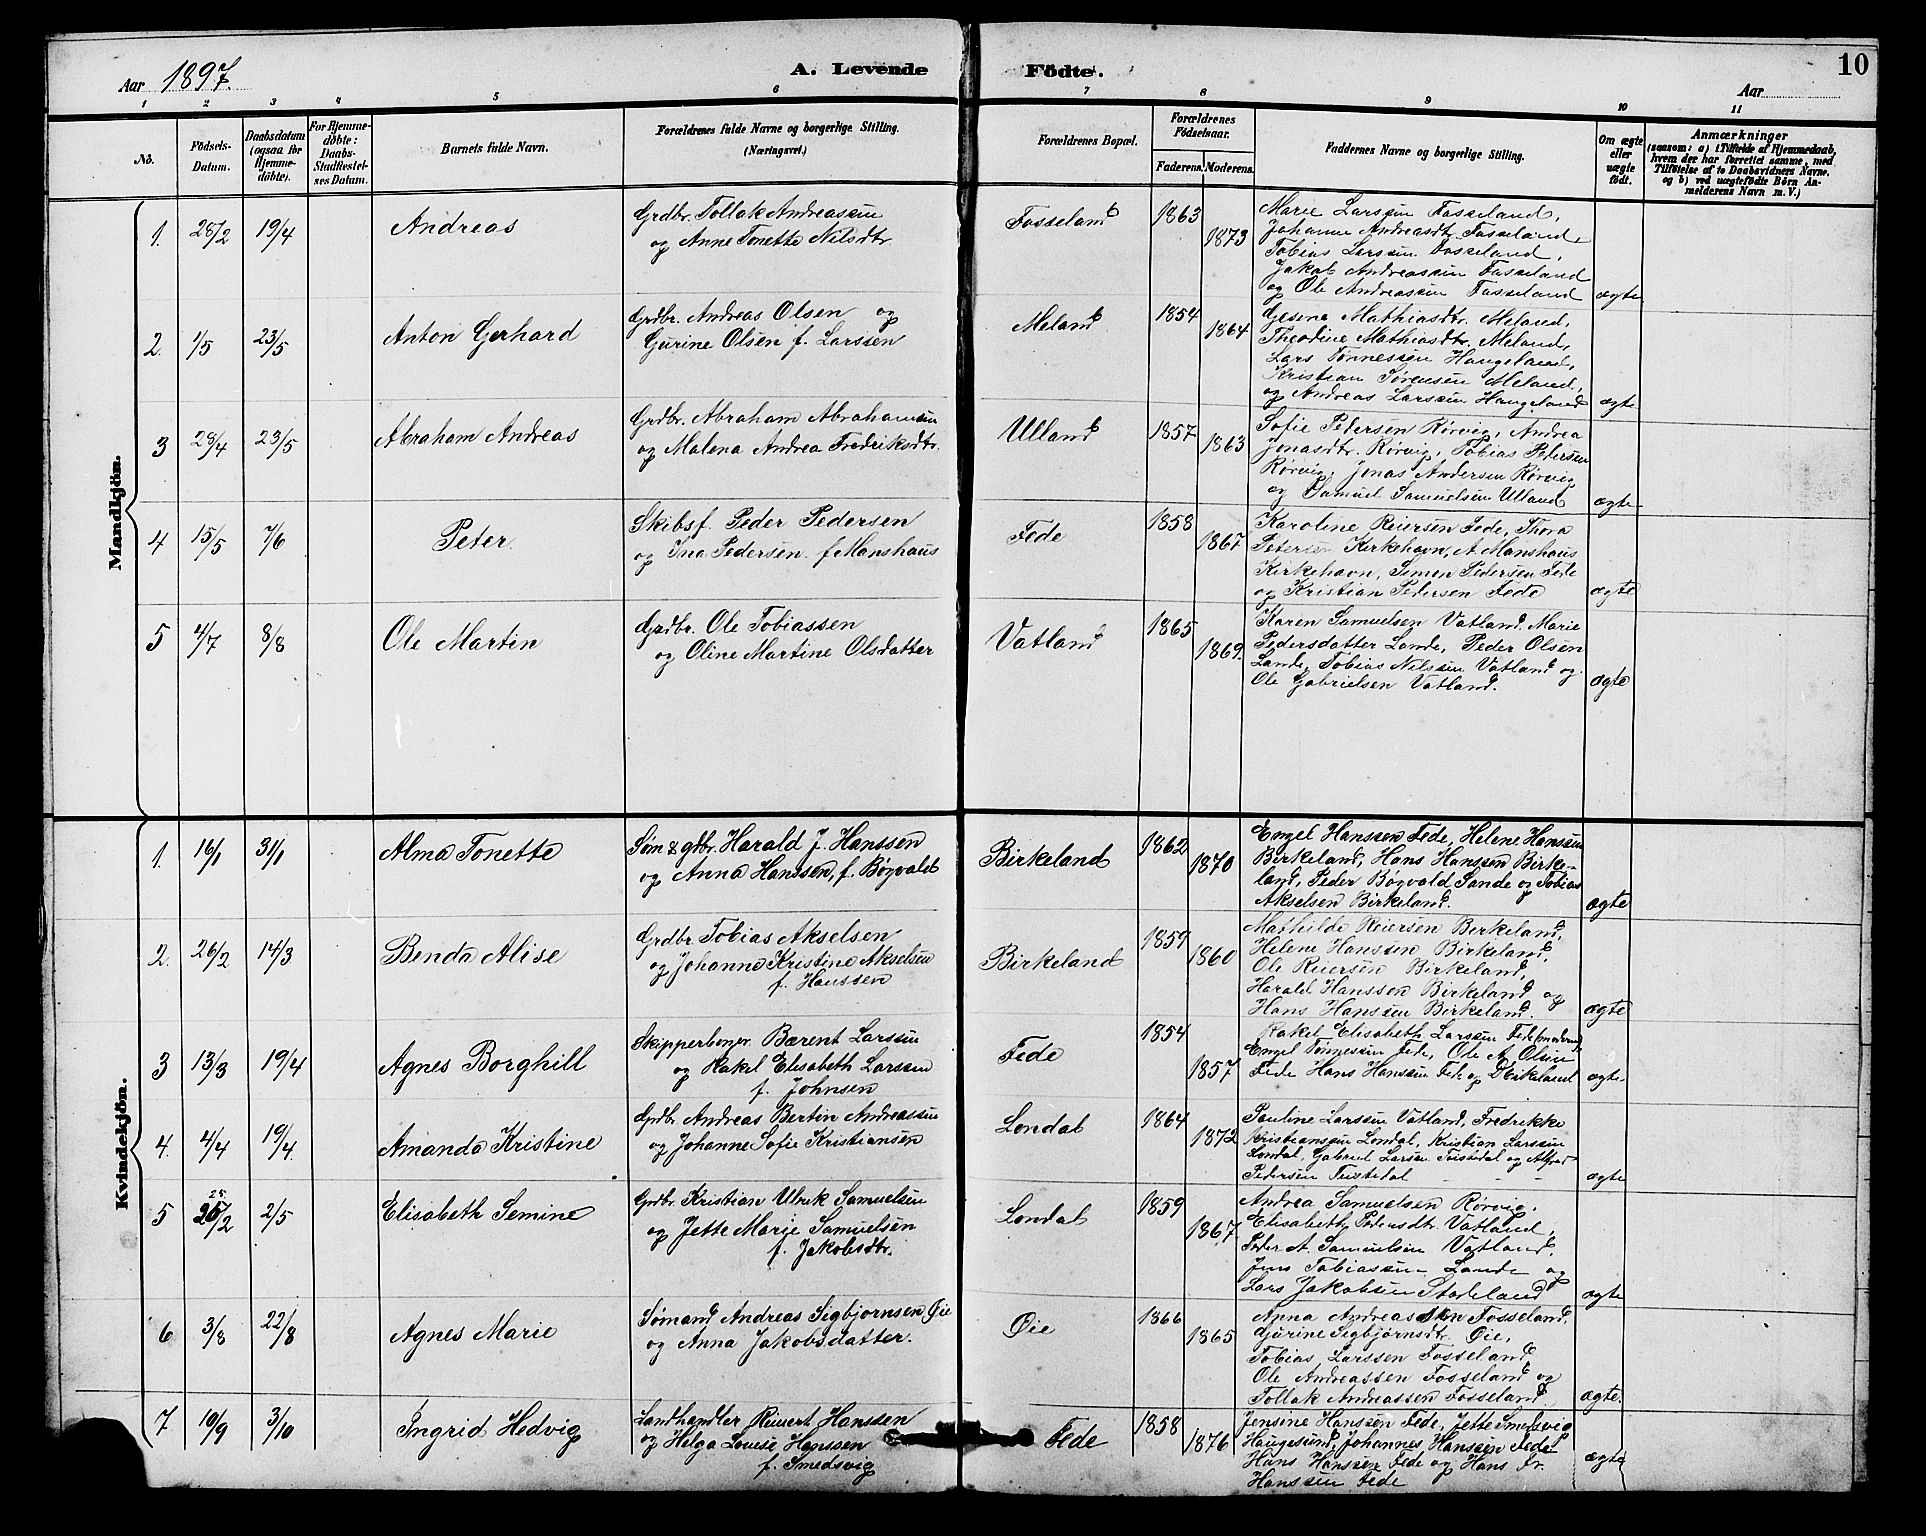 Aar 1897.
A. Levende Födte.
Aar
10
1 2 3 4 5 6 7 8 9 10 11
No.
Födsels-Datum.
Daabsdatum (ogsaa for Hjemme-döbte).
For Hjemme-döbte: Daabs-Stadfæstelses Datum.
Barnets fulde Navn.
Forældrenes fulde Navne og borgerlige Stilling. (Næringsvei.)
Forældrenes Bopæl.
Forældrenes Födselsaar.
Faderens. Moderens.
Faddernes Navne og borgerlige Stilling.
Om ægte eller uægte födt.
Anmærkninger
(saasom: a) i Tilfælde af Hjemmedaab,
hvem der har forrettet samme, med
Tilföielse af to Daabsvidners Navne.
og b) ved uægtefödte Börn An-
melderens Navn m. V.)
Mandkjön.
1. 28/2 19/4 Andreas
Grdbr. Tollak Andreassen
og Anne Tonette Nilsdtr.
Fosseland 1863 1873
Marie Larssen Fosseland,
Johanne Andreasdtr. Fosseland,
Tobias Larssen Fosseland,
Jakob Andreassen Fosseland
og Ole Andreassen Fosseland
ægte
2. 1/5 23/5 Anton Gerhard
Grdbr. Andreas Olsen og
Gurine Olsen f. Larssen
Meland 1854 1864
Gesena Mathiasdtr. Meland,
Theodine Mathiasdtr. Meland,
Lars Tønnessen Haugeland,
Kristian Sørensen Meland,
og Andreas Larssen Haugeland
ægte
3 28/4 23/5 Abraham Andreas
Grdbr. Abraham Abrahamsen
og Malena Andrea Fredriksdtr.
Ulland 1857 1863
Sofie Pedersen Rørvig, Andrea
Jonasdtr. Rørvig, Tobias Pedersen
Rørvig, Jonas Andersen Rørvig
og Samuel Samuelsen Ulland
ægte
4 15/5 7/6 Peter.
Skibsf. Peder Pedersen
og Ina Pedersen. f. Manshaus
Fede 1858 1867
Karoline Reiersen Fede, Thora
Petersen Kirkehavn, A. Manshaus
Kirkehavn, Simon Pedersen Fede
og Kristian Pedersen Fede
ægte
5 4/7 8/8 Ole Martin
Grdbr. Ole Tobiassen
og Oline Martine Olsdatter
Vatland 1865 1869.
Karen Samuelsen Vatland. Marie
Pedersdatter Lande, Peder Olsen
Lande, Tobias Nilssen Vatland og
Ole Gabrielsen Vatland.
ægte
Kvindekjön.
1. 16/1 31/1 Alma Tonette
Søm & gdbr. Harald J. Hanssen
og Anna Hanssen, f. Bøgvald
Birkeland 1862 1870
Engel Hanssen Fede, Helene Hanssen
Birkeland, Hans Hanssen Birke-
land, Peder Bøgvald Sande og Tobias
Akselsen Birkeland.
ægte
2. 26/2 14/3 Benda Alise
Grdbr. Tobias Akselsen
og Johanne Kristine Akselsen
f. Hanssen
Birkeland 1859 1860
Mathilde Reiersen Birkeland,
Helene Hanssen Birkeland,
Ole Reiersen Birkeland,
Harald Hanssen Birkeland og
Hans Hanssen Birkeland.
ægte
3 13/3 19/4 Agnes Borghill
Skipperborger Bærent Larssen
og Rakel Elisabeth Larssen
f. Johnsen
Fede 1854 1857
Rakel Elisabeth Larssen Fede (moderen)
Engel Tønnessen Fede, Ole A. Olsen
Fede Hans Hanssen Fede og
ægte
4. 4/4 19/4. Amanda Kristine
Grdbr. Andreas Bertin Andreassen
og Johanne Sofie Kristiansen
Londal 1864 1872
Pauline Larssen Vatland, Fredrikke
Kristianssen Londal, Kristian Larssen
Londal, Gabriel Larsen Tustedal og Alfred
Pedersen Tustedal
ægte
5 25/2 2/5 Elisabeth Semine
Grdbr. Kristian Ulrik Samuelsen
og Jette Marie Samuelsen
f. Jakobsdtr.
Londal 1859 1867
Andrea Samuelsen Rørvig,
Elisabeth Pedersdtr. Vatland,
Peder A. Samuelsen Vatland,
Jens Tobiassen Lande og
Lars Jakobsen Stordeland
ægte
6 3/8 22/8 Agnes Marie
Sømand Andreas Sigbjørnsen Øie
og Anna Jakobsdatter.
Øie 1866 1865
Anna Andreassen Fosseland,
Gurine Sigbjørnsdtr. Øie,
Tobias Larssen Fosseland,
Ole Andreassen Fosseland og
Tollak Andreassen Fosseland.
ægte.
7 10/9 3/10 Ingrid Hedvig
Landhandler Reinert Hanssen
og Helga Lovise Hanssen
f. Smedsvig
Fede 1858 1876
Jensine Hanssen Fede, Jette Smedsvig
Haugesund, Johannes Hanssen Fede
Hans Hanssen Fede og Hans Fr.
Hanssen Fede
ægte